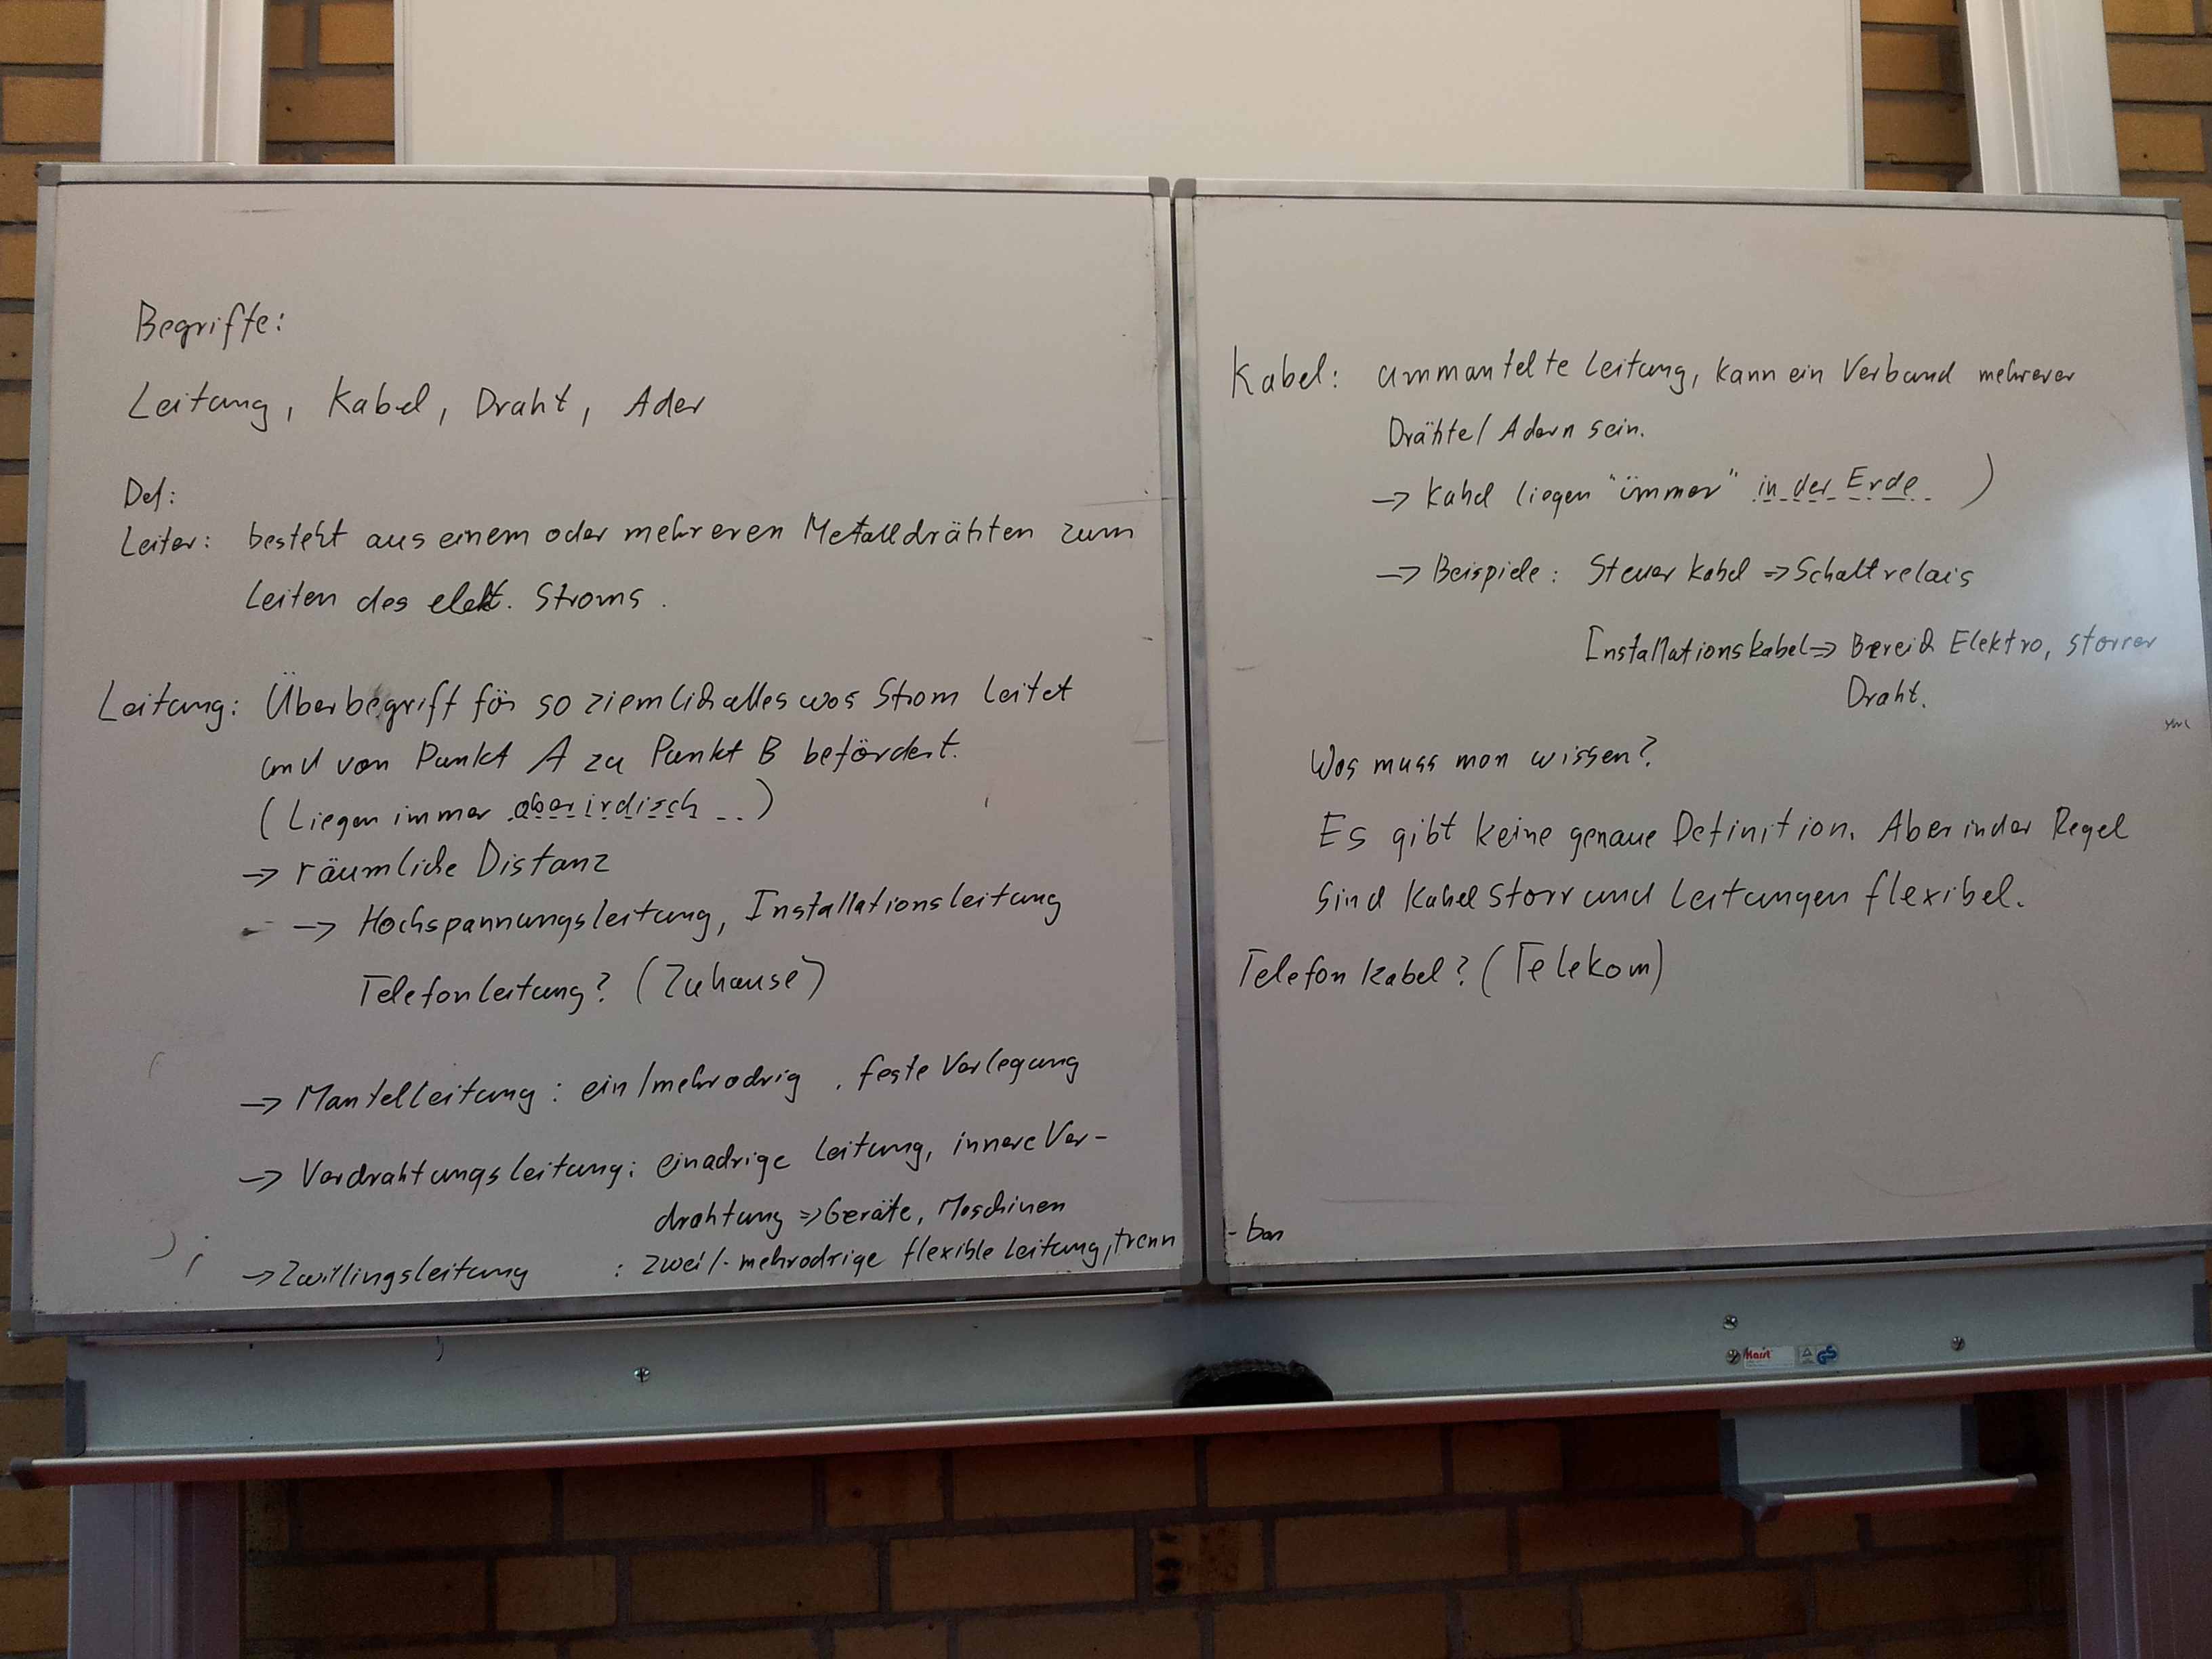 Begriffe:
Leitung, Kabel, Draht, Ader
Def:
Leiter: besteht aus einem oder mehreren Metalldrähten zum
Leiten des elekt. Stroms.
Leitung: Überbegriff für so ziemlich alles was Strom leitet
und von Punkt A zu Punkt B befördert.
(Liegen immer oberirdisch ..)
-> räumliche Distanz
-> Hochspannungsleitung, Installationsleitung
Telefonleitung? (Zuhause)
-> Mantelleitung: ein/mehradrig, feste Verlegung
-> Verdrahtungsleitung: einadrige Leitung, innere Ver-
drahtung => Geräte, Maschinen
-> Zwillingsleitung : zwei/-mehradrige flexible Leitung, trenn-bar
Kabel: ummantelte Leitung, kann ein Verband mehrerer
Drähte/Adern sein.
-> Kabel liegen "immer" in der Erde )
-> Beispiele: Steuerkabel => Schaltrelais
Installationskabel => Bereich Elektro, starrer
Draht.
Was muss man wissen?
Es gibt keine genaue Definition. Aber in der Regel
sind Kabel starr und Leitungen flexibel.
Telefonkabel? (Telekom)
Karst
GS